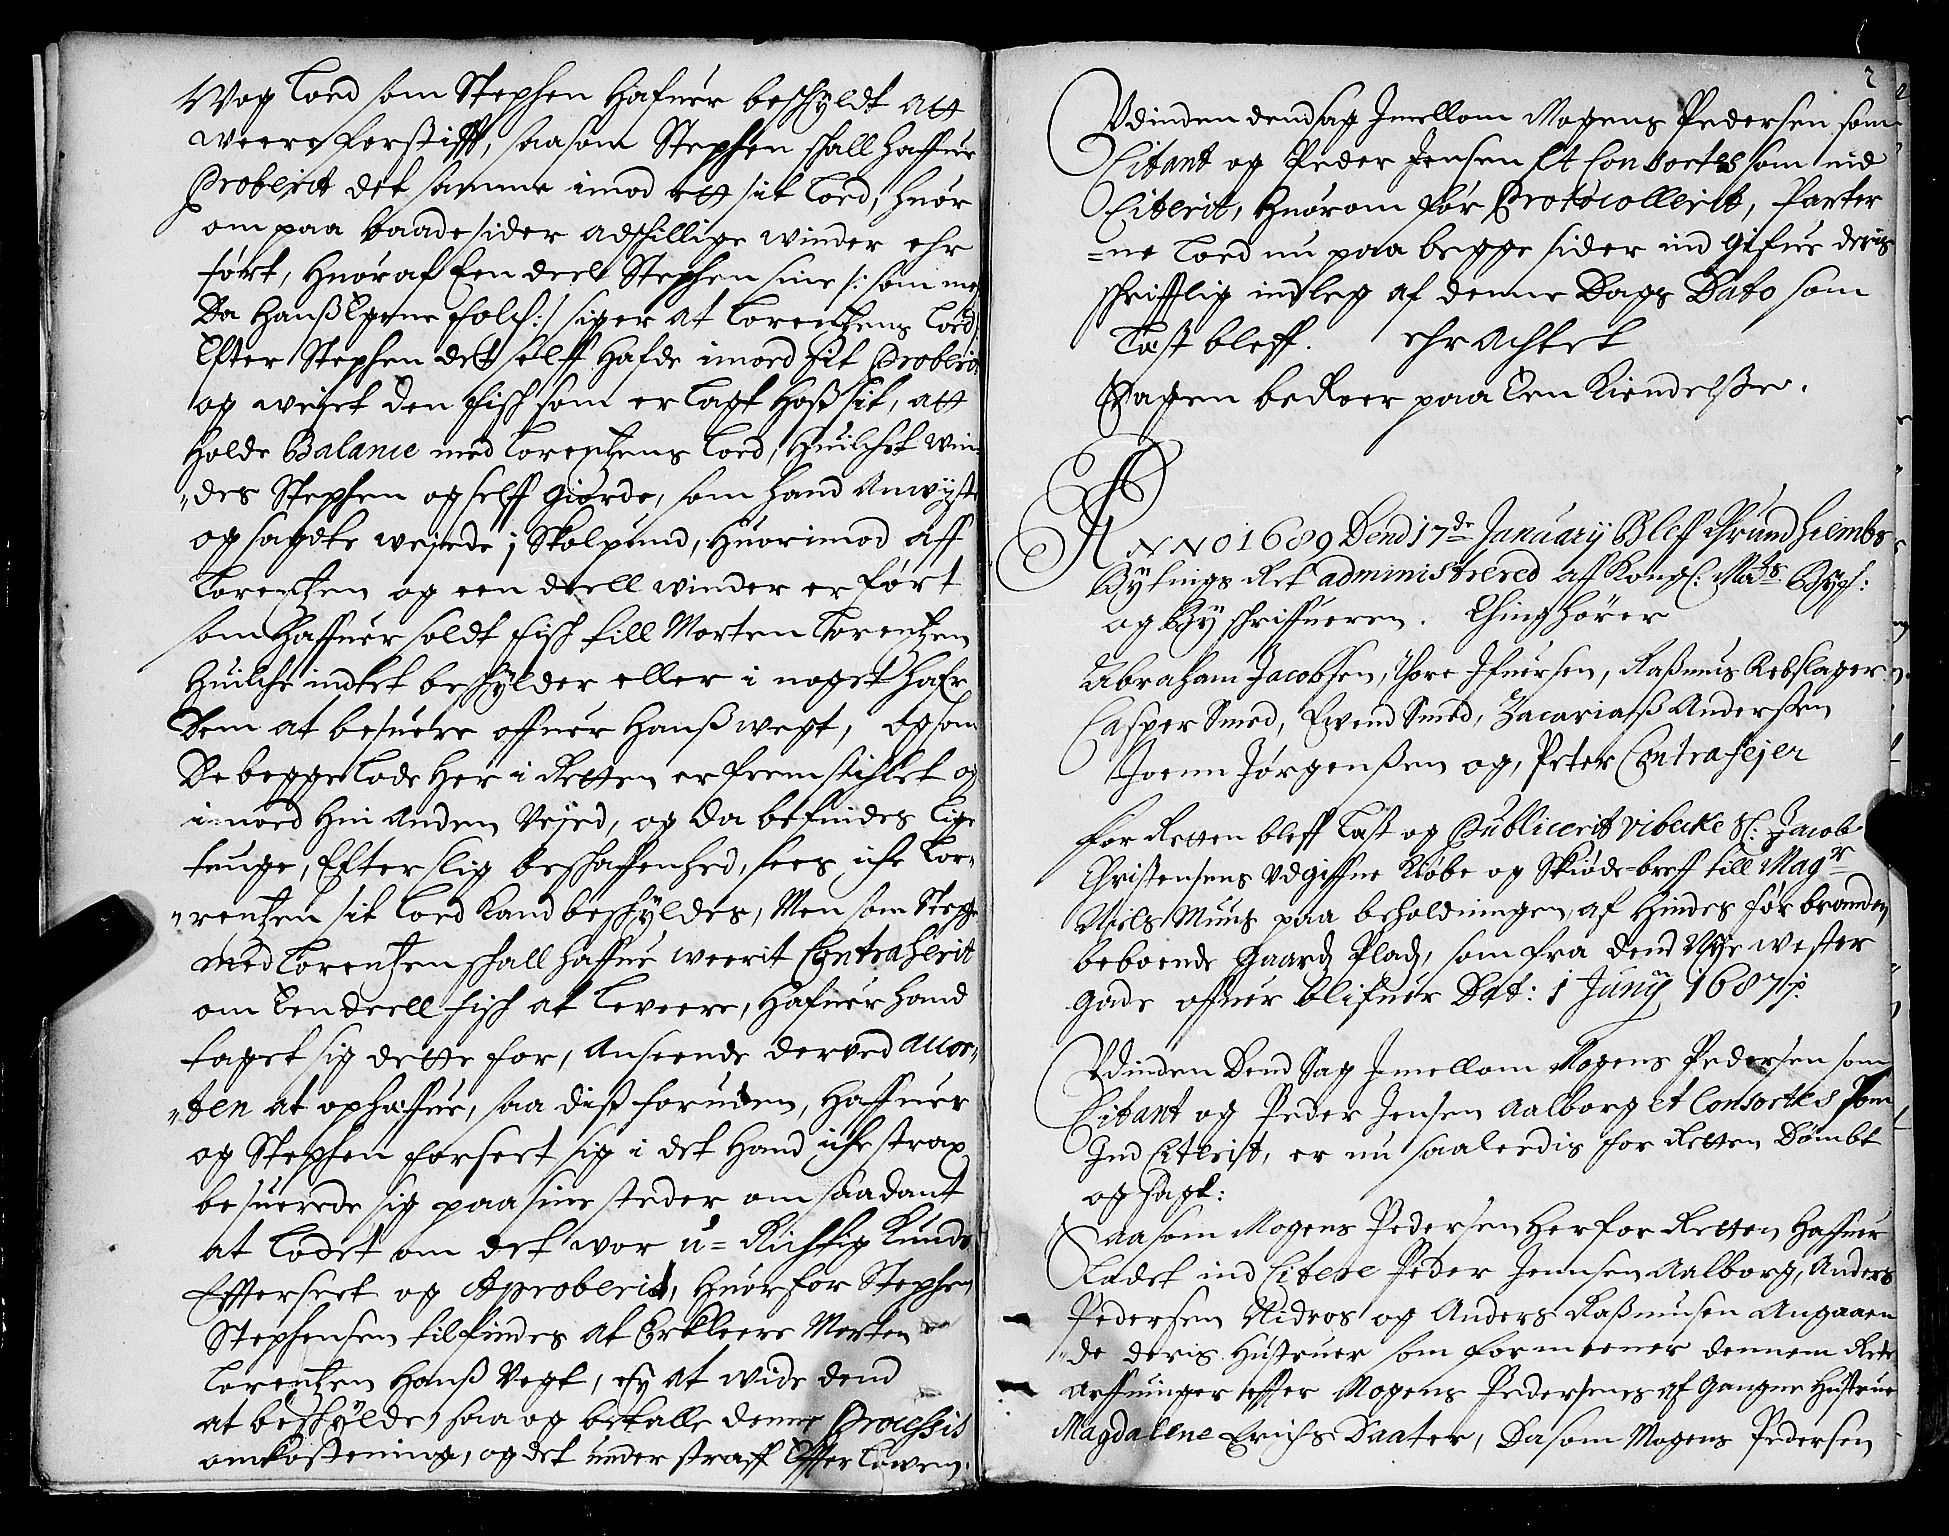 Wog Loed som Stephen Hafuer beschyldt att
weere forstifft, saasom Stephen schall haffue
Proberit det samme imod ett sit Loed, huor
om paa baade sider adschillige winder ehr
ført, Huoraf Een deel Stephen sine /: som med
Da Hanß Egene folch :/ siger at Lorentzens Loed
Efter Stephen det self Hafde imoed sit Proberit
og weiet den fisch som er lagt Hoß sit, att
Holde Balance med Lorentzens Loed, Huilchet win
"des Stephen og selff giorde, som hand Anwyste
og sagdte weiede j Skolpund, Huorimod aff
Lorentzen og een deell winder er ført
som Haffuer soldt fisch till Morten Lorentzen
Huilche indtet beschylder eller i noget Hafr
Dem at besuere offuer Hanß wegt, Og som
De begge Lode Her i Retten er fremskichet og
imoed Hin Anden Vejed, og da befindes lige
tunge, Efter slig beschaffenhed, sees iche Lor=
"rentzen sit Loed kand beschyldes, Men som Steph:
med Lorentzen schall haffue weerit Contraherit
om Een deell fisch at leveere, Hafuer hand
taget sig dette for, Anseende derved Accor=
"den at ophæffue, saa dist foruden, Haffuer
og Stephen forseet sig i det Hand iche strax
besuerede sig paa sine steder om saadant
at Lodet om det wor u= Richtig kunde
Efterseet og Aproberit, Huorfor Stephen
Stephensen tilfindes at Erklere Morten
Lorentzen Hanß Vegt, ey at wide dend
at beskylde, saa og betalle denne Processis
omkostning, og det under straff Efter Lowen.
2
Udinden dend sag Jmellom Mogens Pedersen som
Citant og Peder Jensen Et Consortes som ind
Citerit, Huorom før Protocollerit, Parter
=ne Loed nu paa begge sider ind gifue deris
schrifftlig indleg af denne Dags Dato som
Læst bleff. ehr Achtet
Sagen beRoer paa Een Kiendelße.
ANNO 1689 Dend 17de January Bleff Thrundhiembs
Bytings Ret administrered af Kongl: Mayts Bypf:
og By schriffueren. Thinghører
Abraham Jacobsen, Thore Ifuersen, Raßmus Rebslager
Casper Smed, Swend Smed, Zacariaß Anderßen
Joenn Jørgenßen og, Peter Contrafejer
for Retten bleff Læst og Publicerit Vibecke Sl: Jacob
Christensens Udgiffne Kiøbe og Skiøde-breff till Magr
Niels Munch paa beholdningen, af Hindes før branden
beboende Gaardz Pladz, som fra dend Nye wester
gade offuer blifuer Dat: 1 Juny 1687 /:
Udinden Dend Sag Jmellom Mogens Pedersen som
Citant og Peder Jensen Aalborg et Consortes som
Ind Citerit, er nu saaledis for Retten Dømbt
og sagt:
Saasom Mogens Pedersen her for Retten Haffuer
Ladet ind Citere Peder Jennsen Aalborg, Anders
Pedersen Nidros og Anders Raßmusen Angaaen
"de deris Hustruer som formeener dennem Rette
Arffuinger effter Mogens Pedersens af Gangne Hustrue
Magdalene Erichs Daater, Da som Mogens Pedersen